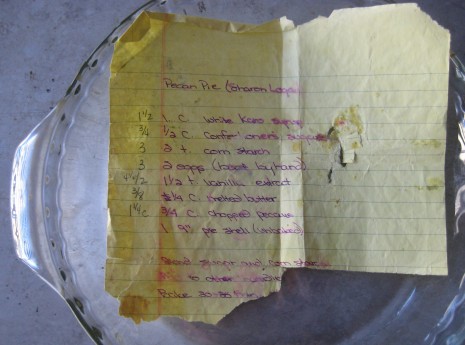 Pecan Pie (Sharon
1 1/2 1 C. White Karo syrup
3/4 1/2 C. Confectioners sugar
3 2 t. corn starch
3 2 eggs (beat by hand)
1 1/2 t. vanilla extract
3/8 1/4 C. melted butter
1 1/8 C 3/4 C. chopped pecans
1 9" pie shell (unbaked)
Blend sugar and corn starch
to other
Bake